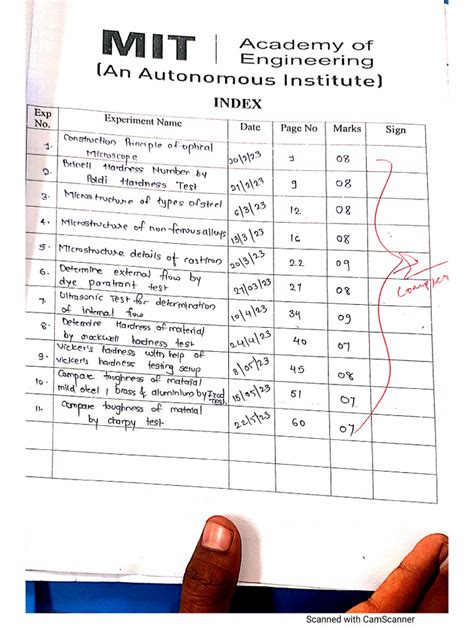 MIT Academy of
Engineering
(An Autonomous Institute)
INDEX
Exp No. Experiment Name Date Page No Marks Sign
1. Construction Principle of optical
Microscope 20/2/23 1 08
2. Brinell Hardness Number by
Poldi Hardness Test 21/2/23 9 08
3. Microstructure of types of steel 6/3/23 12 08
4. Microstructure of non-ferrous alloys 13/3/23 16 08
5. Microstructure details of castiron 20/3/23 22 09
6. Determine external flow by
dye paratrant test 27/03/23 27 08
7. Ultrasonic Test for determination
of internal flow 10/4/23 34 09
8. Determine Hardness of material
by rockwell hadness test 24/4/23 40 07
9. Vicker's hardness with help of
vicker's hardness testing setup 8/05/23 45 08
10. Compare toughness of material
mild steel, brass & aluminium by Izod
Test. 15/05/23 51 07
11. Compare toughness of material
by charpy test. 22/5/23 60 07
Scanned with CamScanner